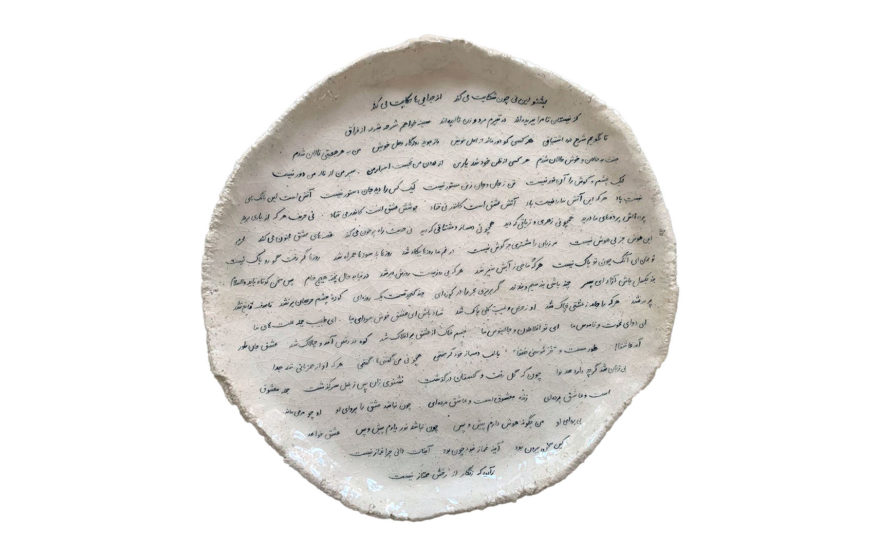 بشنو این نی چون شکایت می‌کند از جدایی‌ها حکایت می‌کند
کز نیستان تا مرا ببریده‌اند در نفیرم مرد و زن نالیده‌اند سینه خواهم شرحه شرحه از فراق
تا بگویم شرح درد اشتیاق هر کسی کو دور ماند از اصل خویش باز جوید روزگار وصل خویش من به هر جمعیتی نالان شدم
جفت بدحالان و خوش‌حالان شدم هر کسی از ظن خود شد یار من از درون من نجست اسرار من سر من از ناله من دور نیست
لیک چشم و گوش را آن نور نیست تن ز جان و جان ز تن مستور نیست لیک کس را دید جان دستور نیست آتش است این بانگ نای
نیست باد هر که این آتش ندارد نیست باد آتش عشق است کاندر نی فتاد جوشش عشق است کاندر می فتاد نی حریف هر که از یاری برید
پرده‌هایش پرده‌های ما درید همچو نی زهری و تریاقی که دید همچو نی دمساز و مشتاقی که دید نی حدیث راه پر خون می‌کند قصه‌های عشق مجنون می‌کند محرم
این هوش جز بی‌هوش نیست مر زبان را مشتری جز گوش نیست در غم ما روزها بیگاه شد روزها با سوزها همراه شد روزها گر رفت گو رو باک نیست
تو بمان ای آنک چون تو پاک نیست هر که جز ماهی ز آبش سیر شد هر که بی روزیست روزش دیر شد در نیابد حال پخته هیچ خام پس سخن کوتاه باید والسلام
بند بگسل باش آزاد ای پسر چند باشی بند سیم و بند زر گر بریزی بحر را در کوزه‌ای چند گنجد قسمت یک روزه‌ای کوزه چشم حریصان پر نشد تا صدف قانع نشد
پر در نشد هر که را جامه ز عشقی چاک شد او ز حرص و عیب کلی پاک شد شاد باش ای عشق خوش سودای ما ای طبیب جمله علت‌های ما
ای دوای نخوت و ناموس ما ای تو افلاطون و جالینوس ما جسم خاک از عشق بر افلاک شد کوه در رقص آمد و چالاک شد عشق جان طور
آمد عاشقا طور مست و خر موسی صعقا با لب دمساز خود گر جفتمی همچو نی من گفتنی‌ها گفتمی هر که او از هم‌زبانی شد جدا
بی‌زبان شد گرچه دارد صد نوا چون که گل رفت و گلستان درگذشت نشنوی زان پس ز بلبل سرگذشت جمله معشوق
است و عاشق پرده‌ای زنده معشوق است و عاشق مرده‌ای چون نباشد عشق را پروای او او چو مرغی ماند
بی‌پر وای او من چگونه هوش دارم پیش و پس چون نباشد نور یارم پیش و پس عشق خواهد
کاین سخن بیرون بود آینه غماز نبود چون بود آینت دانی چرا غماز نیست
زآنکه زنگار از رخش ممتاز نیست